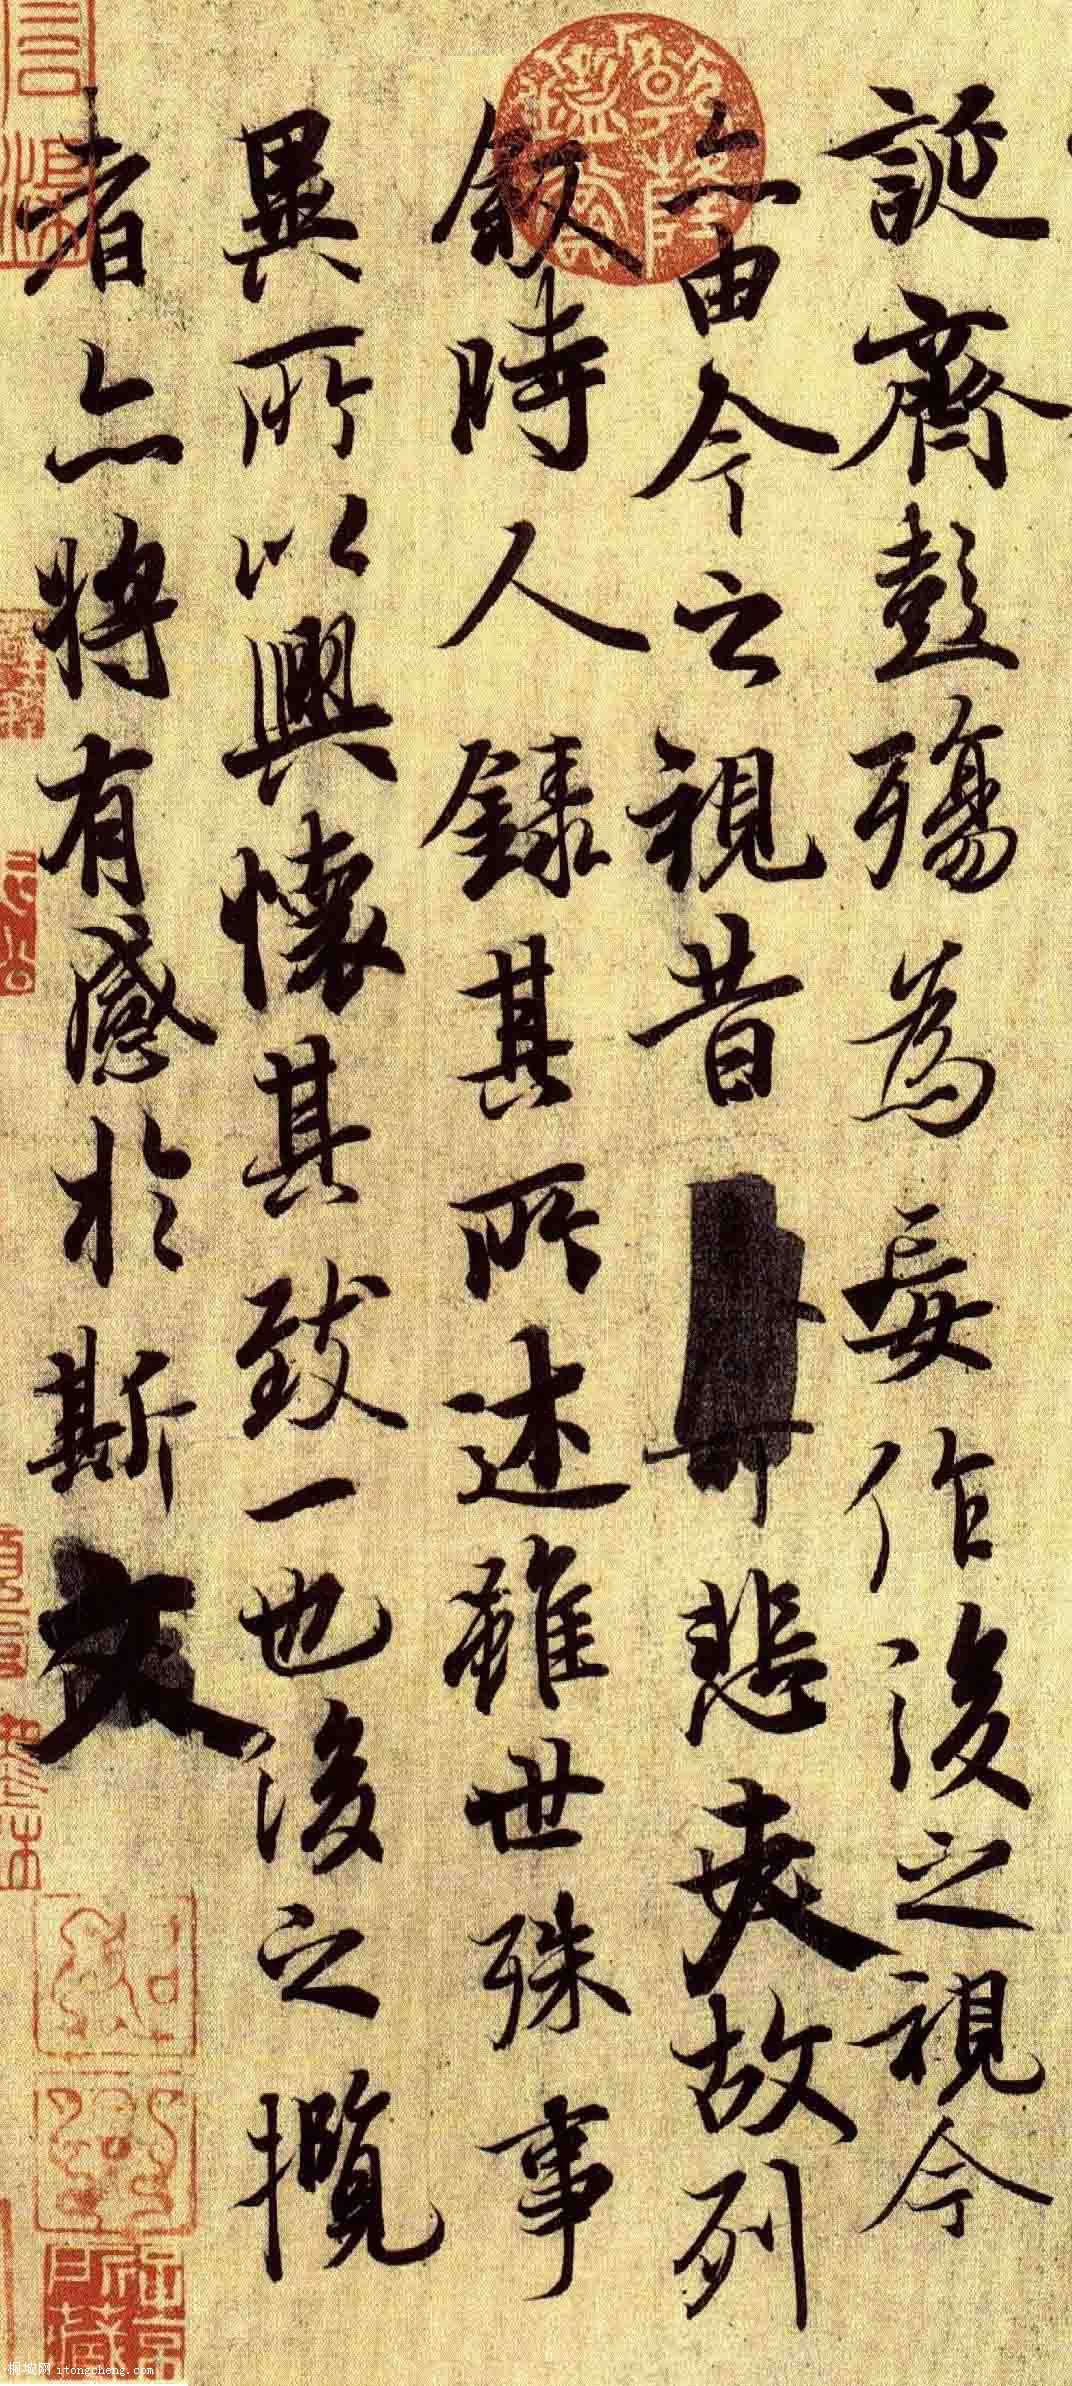 誕齊彭殤為妄作後之視今
亦由今之視昔悲夫故列
叙時人錄其所述雖世殊事
異所以興懷其致一也後之攬
者亦將有感於斯文
桐城网 itongcheng.com